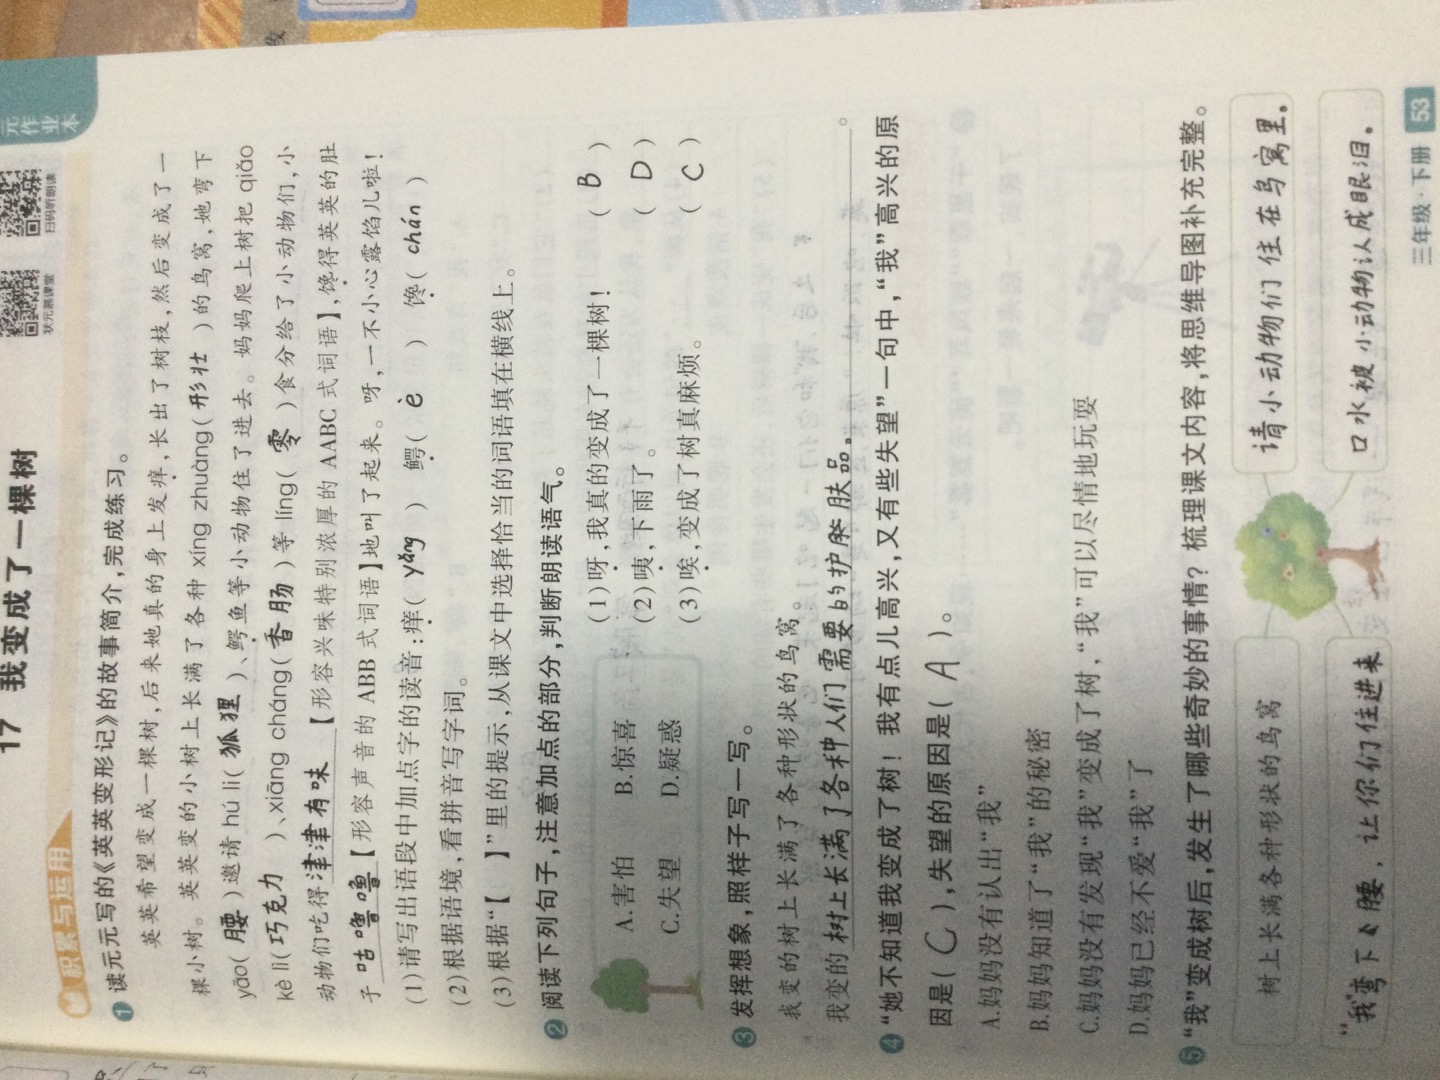 元作业本
扫码听朗读
状元慕课堂
17 我变成了一棵树
积累与运用
1 读元元写的《英英变形记》的故事简介,完成练习。
英英希望变成一棵树,后来她真的身上发痒,长出了树枝,然后变成了一
棵小树。英英变的小树上长满了各种 xíng zhuàng(形壮)的鸟窝,她弯下
yāo(腰)邀请 hú li(狐狸)、鳄鱼等小动物住了进去。妈妈爬上树把 qiǎo
kè lì(巧克力)、xiāng cháng(香肠)等 líng(零)食分给了小动物们,小
动物们吃得津津有味【形容兴味特别浓厚的 AABC 式词语】,馋得英英的肚
子咕噜噜【形容声音的 ABB 式词语】地叫了起来。呀,一不小心露馅儿啦!
(1)请写出语段中加点字的读音:痒(yǎng) 鳄(è) 馋(chán)
(2)根据语境,看拼音写字词。
(3)根据“【 】”里的提示,从课文中选择恰当的词语填在横线上。
2 阅读下列句子,注意加点的部分,判断朗读语气。
A.害怕 B.惊喜
C.失望 D.疑惑
(1)呀,我真的变成了一棵树! (B)
(2)咦,下雨了。 (D)
(3)唉,变成了树真麻烦。 (C)
3 发挥想象,照样子写一写。
我变的树上长满了各种形状的鸟窝。
我变的树上长满了各种人们需要的护肤品。。
4 “她不知道我变成了树!我有点儿高兴,又有些失望”一句中,“我”高兴的原
因是(C),失望的原因是(A)。
A.妈妈没有认出“我”
B.妈妈知道了“我”的秘密
C.妈妈没有发现“我”变成了树,“我”可以尽情地玩耍
D.妈妈已经不爱“我”了
5 “我”变成树后,发生了哪些奇妙的事情?梳理课文内容,将思维导图补充完整。
树上长满各种形状的鸟窝
请小动物们住在鸟窝里。
“我”弯下腰,让你们住进来
口水被小动物认成眼泪。
三年级·下册 53